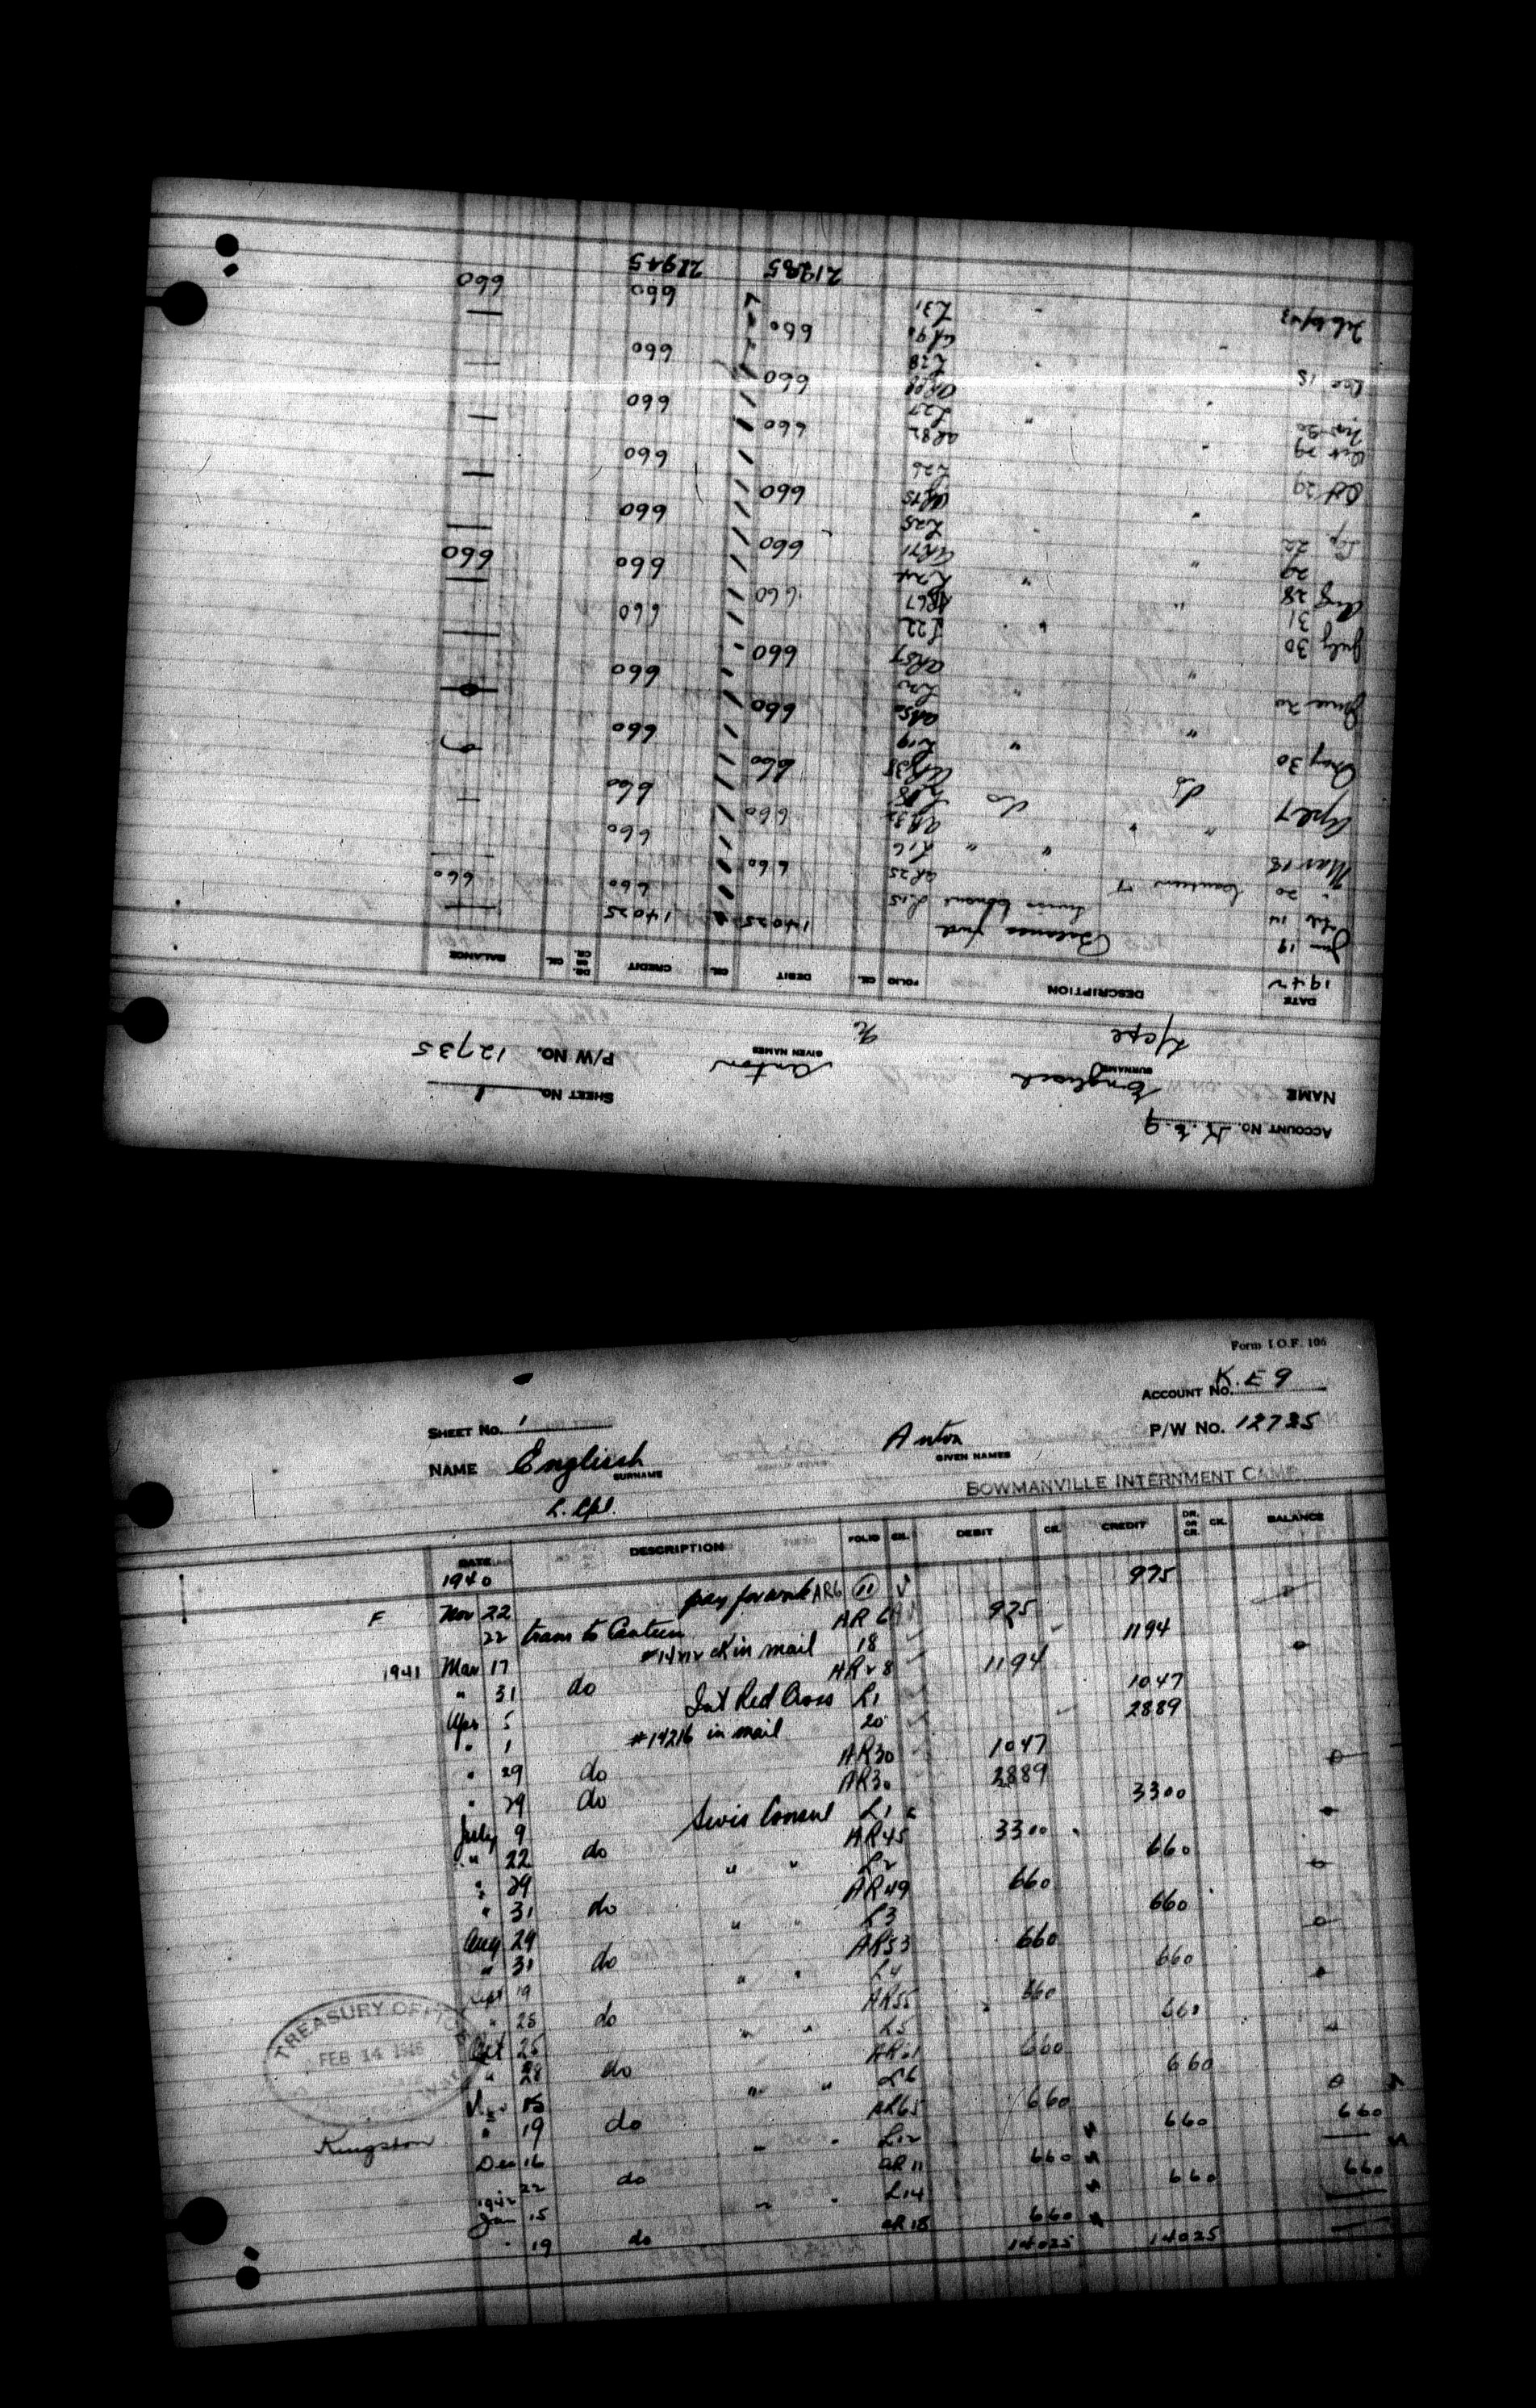 ACCOUNT NO. K.E.9
SHEET NO. 1
NAME Englisch Anton P/W NO. 12735
SURNAME GIVEN NAMES
DATE DESCRIPTION FOLIO CK. DEBIT CK. CREDIT DR. OR CR. CK. BALANCE
1942
Jan 19 Balance fwd 14025 14025
Feb 14 Swiss Consul L15 660 660
" 20 Canteen AR25 660
Mar 18 " " L16 660
AR32 660
Apl 7 do do 660
AR35 660
May 30 " L19 660
AR50 660
June 20 " L20 660
AR57 660
July 30 " L22 660
31 " AR67 660
Aug 28 " L24 660 660
29 " AR71 660
Sep 22 L25 660
" AR75 660
Oct 29 L26 660
Oct 29 " AR82 660
Nov 30 " L27 660
" AR88 660
Dec 15 " L28 660
" 660
Feb " L31 660 660
21945
Form I.O.F. 106
ACCOUNT NO. K.E 9
SHEET NO. 1
P/W NO. 12735
NAME Englisch Anton
SURNAME GIVEN NAMES
L. Cpl.
BOWMANVILLE INTERNMENT CAMP
DATE DESCRIPTION FOLIO CK. DEBIT CK. CREDIT DR. OR CR. CK. BALANCE
1940
F Nov 22 pay for work AR6 11 975
22 trans to Canteen AR 6 975
1941 Mar 17 ck in mail 18 1194
" 31 do AR28 1194
Apr 5 Int Red Cross L1 1047
" 1 #14216 in mail 20 2889
" 29 do AR30 1047
" 29 do AR30 2889
July 9 Swis Consul L1 3300
" 22 do AR45 3300
" 29 " " L2 660
" 31 do AR49 660
Aug 29 " " L3 660
" 31 do AR53 660
Sept 19 " " L4 660
" 25 do AR55 660
Oct 25 " " L5 660
" 28 do AR61 660
15 " " L6 660
" 19 do AR65 660
Dec 16 " " L12 660 660
22 do AR 11 660
1942
Jan 15 " " L14 660 660
" 19 do AR 18 660
14025 14025
TREASURY OFFICE
FEB 14
Kingston